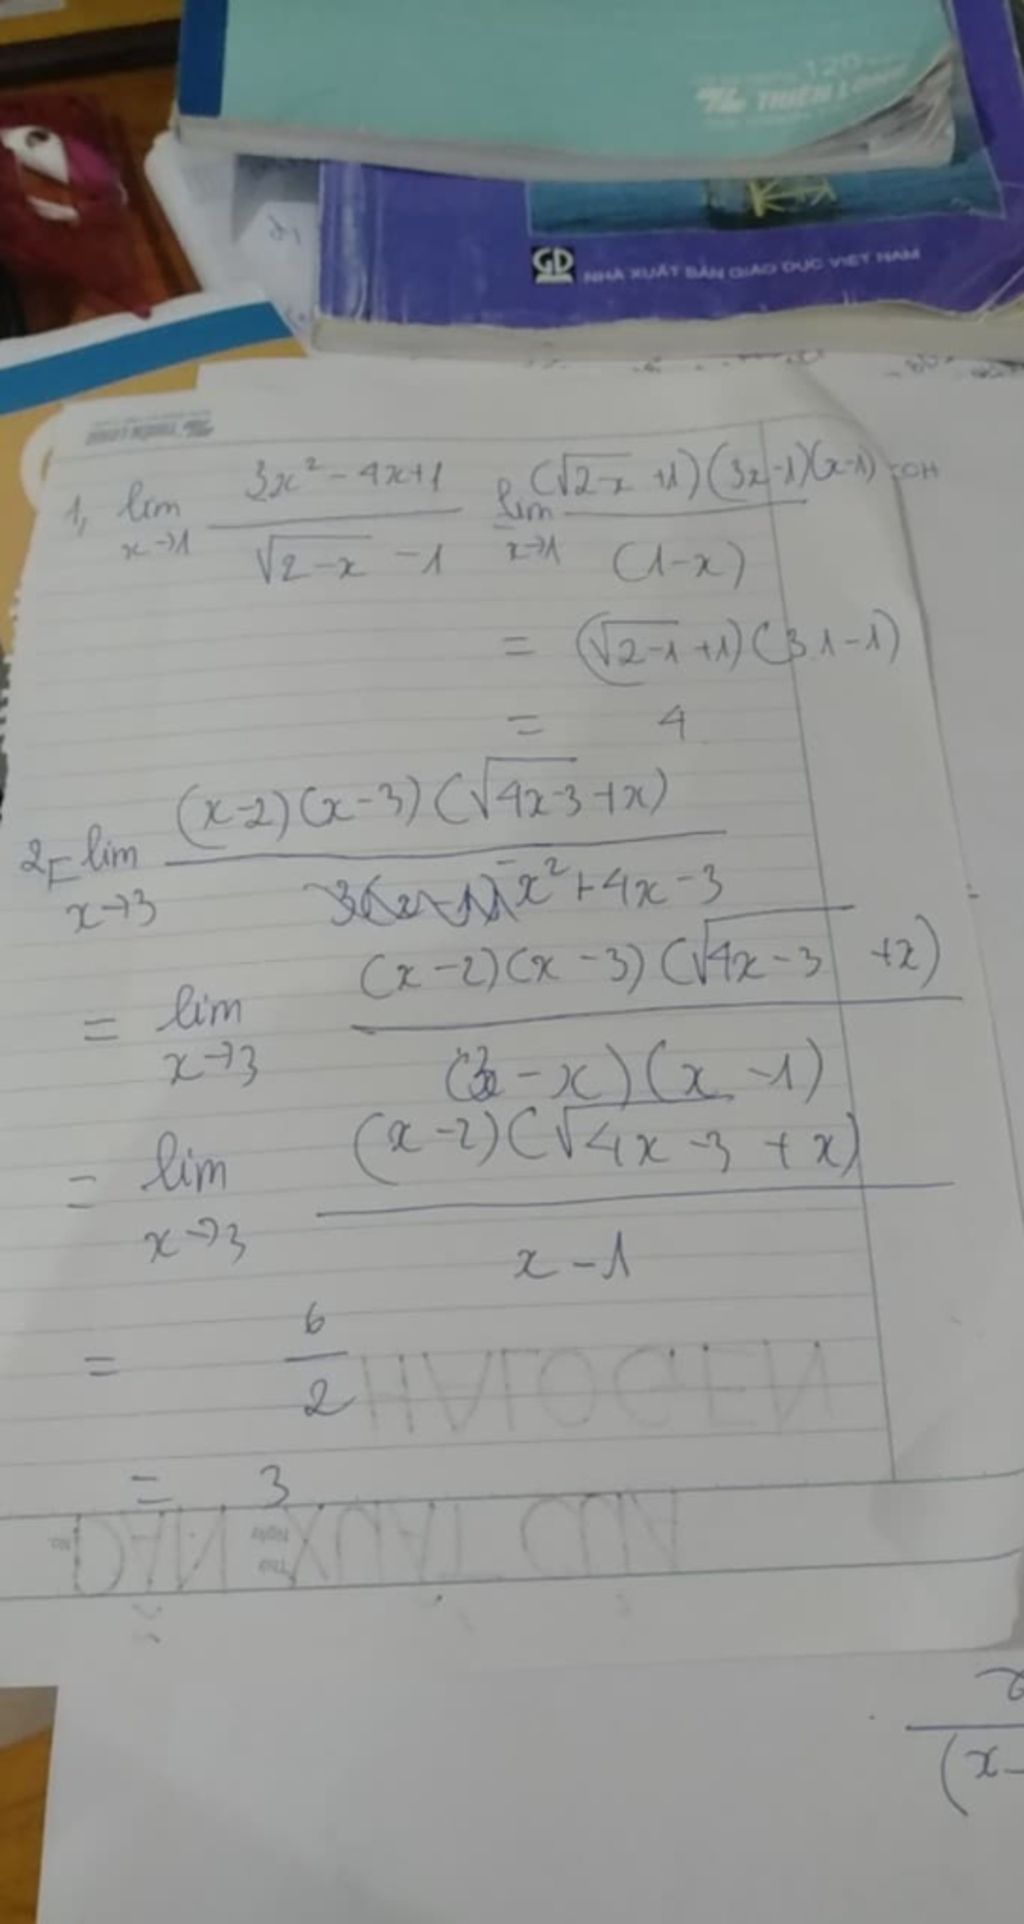 120
THIÊN LONG
GD NHÀ XUẤT BẢN GIÁO DỤC VIỆT NAM
THIÊN LONG
1, lim x→1 (3x² - 4x + 1) / (√(2-x) - 1) lim x→1 (√(2-x) + 1)(3x - 1)(x - 1) / (1 - x)
= (√(2-1) + 1)(3.1 - 1)
= 4
2, = lim x→3 (x-2)(x-3)(√(4x-3) + x) / -x² + 4x - 3
= lim x→3 (x-2)(x-3)(√(4x-3) + x) / (3-x)(x-1)
= lim x→3 (x-2)(√(4x-3) + x) / x - 1
= 6/2
= 3
HALOGEN
DẪN XUẤT CỦA
(x-